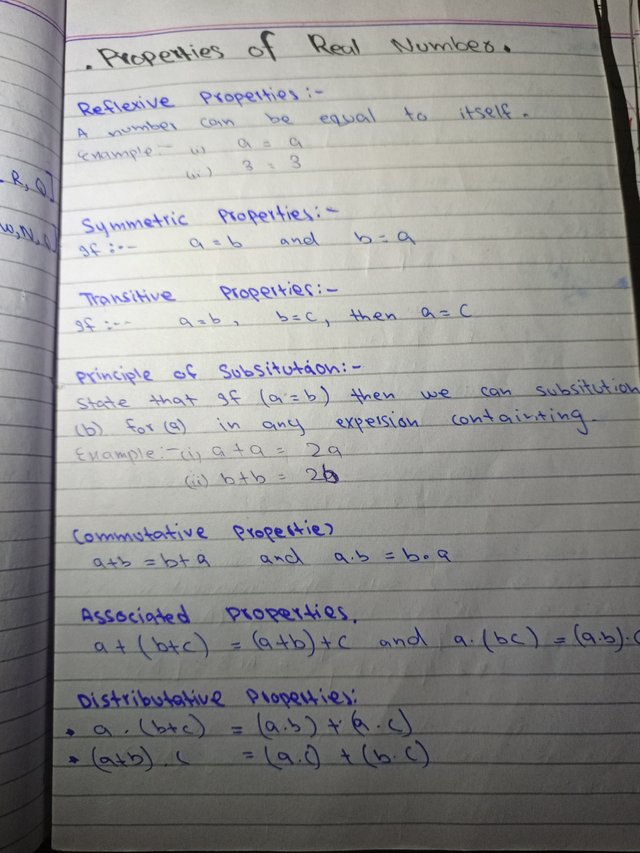 . Properties of Real Number.
Reflexive Properties:-
A number can be equal to itself.
Example:- (i) a = a
(ii) 3 = 3
R, Q]
W, N, 
Symmetric Properties:-
If :-- a = b and b = a
Transitive Properties:-
If :-- a = b, b = c, then a = c
Principle of Subsitutáon:-
State that If (a = b) then we can subsitution
(b) for (a) in any expersion containting
Example:- (i) a + a = 2a
(ii) b + b = 2b
Commutative Properties
a+b = b+a and a.b = b.a
Associated Properties.
a + (b+c) = (a+b)+c and a.(bc) = (a.b).c
Distributative Properties:
• a . (b+c) = (a.b) + (a.c)
• (a+b) . c = (a.c) + (b.c)